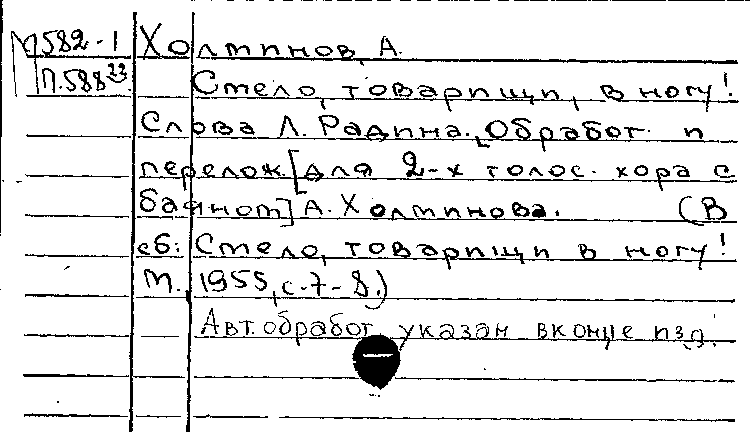 П582-1 Холминов, А.
П.588²³ Смело, товарищи, в ногу!
Слова Л. Радина. Обработ. и
перелож. [для 2-х голос. хора с
баяном] А. Холминова. (В
сб: Смело, товарищи в ногу!
М., 1955, с. 7-8.)
Авт. обработ. указан в конце изд.